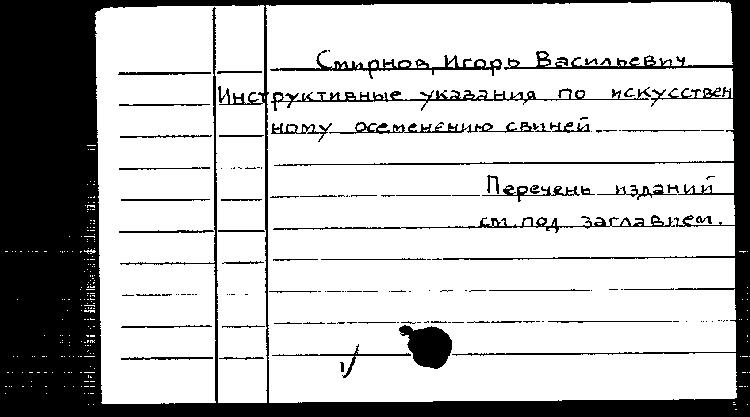 Смирнов, Игорь Васильевич
Инструктивные указания по искусствен
ному осеменению свиней
Перечень изданий
см. под заглавием.